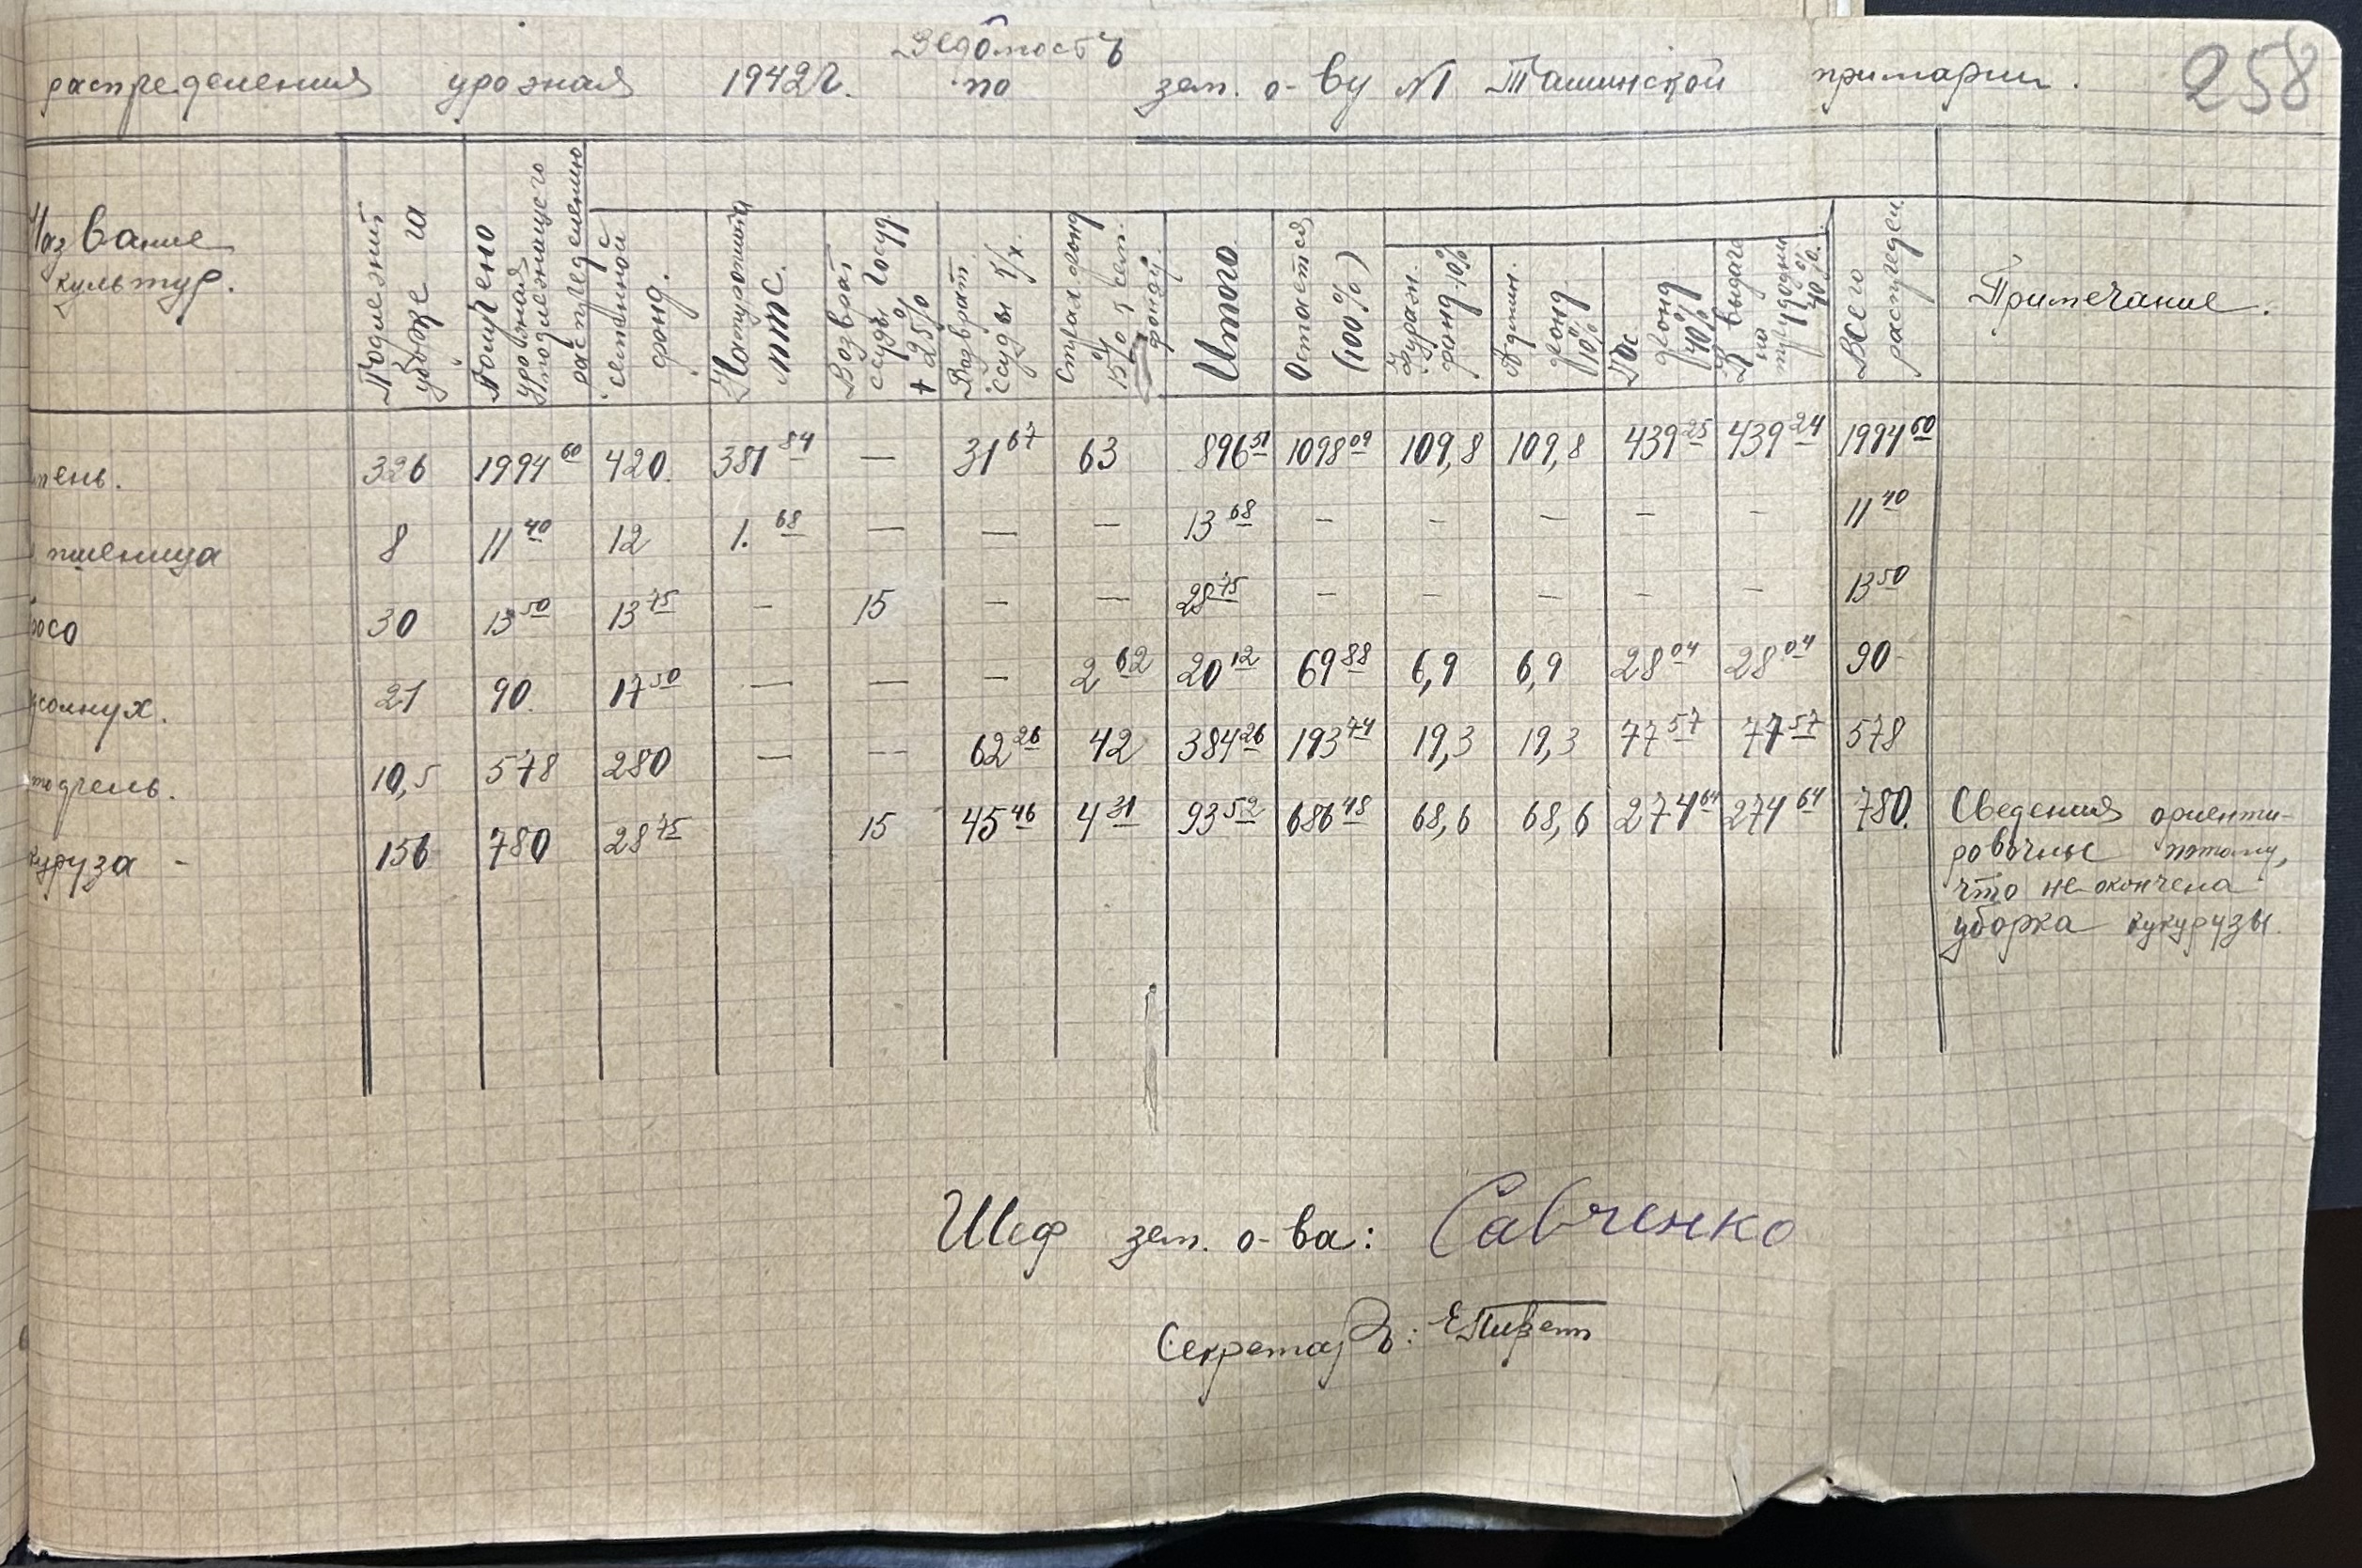 Ведомость
258
распределения урожая 1942г. по зем. о-ву №1 Ташинской примарии.
Название культур.
Подлежит уборке га
Получено урожая подлежащего распределению
семенной фонд.
Натуроплата мтс.
Возврат ссуды госуд. + 25%
Возврат. ссуды к/х.
Страх. фонд 15% от сем. фонда.
Итого
Остается (100%)
Фураж. фонд 10%
Админ. фонд 10%
Гос. фонд 40%
К выдаче по трудодням 40%.
Всего распредел.
Примечание.
мень. 326 1994 60 420. 381 84 — 31 67 63 896 51 1098 09 109,8 109,8 439 25 439 24 1994 60
пшеница 8 11 40 12 1. 68 — — — 13 68 — — — — — 11 40
росо 30 13 50 13 75 — 15 — — 28 75 — — — — — 13 50
солнух. 21 90. 17 50 — — — 2 62 20 12 69 88 6,9 6,9 28 04 28 04 90-
10,5 578 280 — -- 62 26 42 384 26 193 74 19,3 19,3 77 57 77 57 578
куруза - 156 780 28 75 15 45 46 4 31 93 52 686 48 68,6 68,6 274 64 274 64 780.
Сведения ориенти-
ровочные потому,
что не окончена
уборка кукурузы.
Шеф зем. о-ва: Савченко
Секретарь: